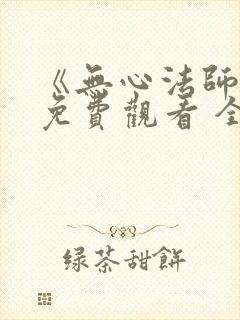 《無心法師
免費觀看 全
绿茶甜餅